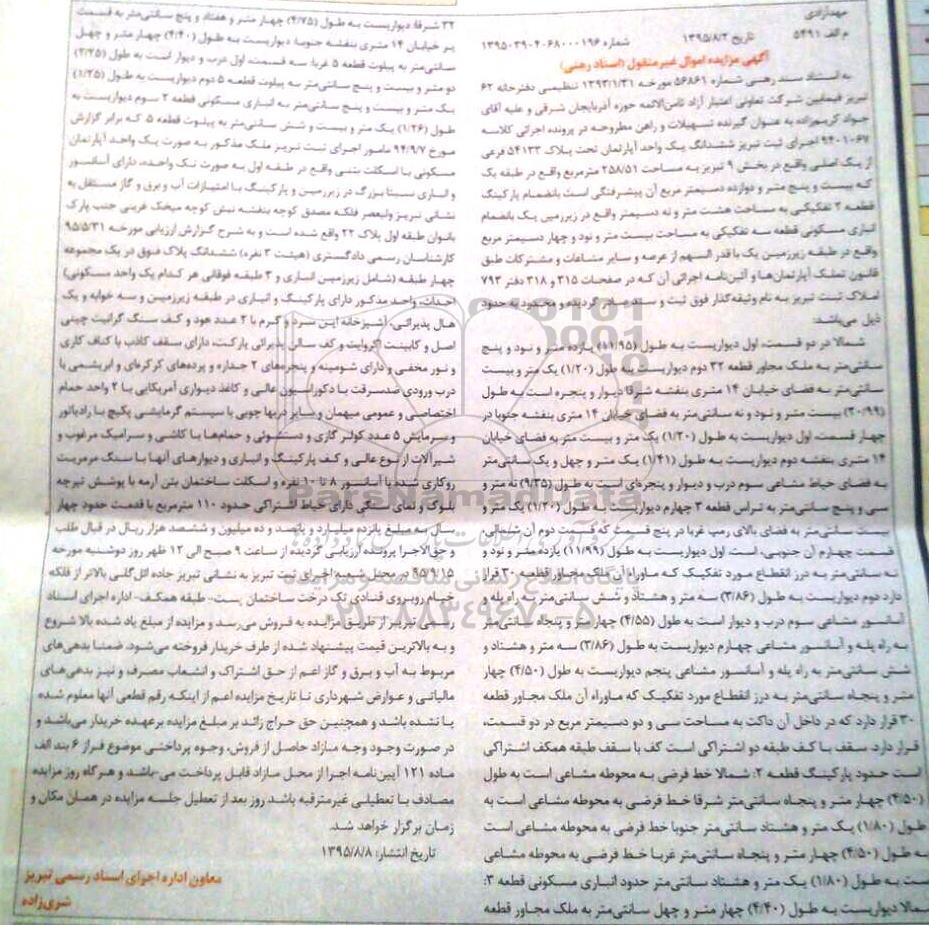 مهدآزادی
م الف ۵۴۹۱ تاریخ ۱۳۹۵/۸/۲ شماره ۱۳۹۵۰۳۹۰۴۰۶۸۰۰۰۱۹۶
آگهی مزایده اموال غیرمنقول (اسناد رهنی)
به استناد سند رهنی شماره ۵۶۸۶۱ مورخه ۱۳۹۳/۱/۳۱ تنظیمی دفترخانه ۶۲
تبریز فیمابین شرکت تعاونی اعتبار آزاد ثامن‌الائمه حوزه آذربایجان شرقی و علیه آقای
جواد کریم‌زاده به عنوان گیرنده تسهیلات و راهن مطروحه در پرونده اجرائی کلاسه
۹۴۰۱۰۶۷ اجرای ثبت تبریز ششدانگ یک واحد آپارتمان تحت پلاک ۵۴۱۳۳ فرعی
از یک اصلی واقع در بخش ۹ تبریز به مساحت ۲۵۸/۵۱ مترمربع واقع در طبقه یک
که بیست و پنج متر و دوازده دسیمتر مربع آن پیشرفتگی است بانضمام پارکینگ
قطعه ۲ تفکیکی به مساحت هشت متر و نه دسیمتر واقع در زیرزمین یک بانضمام
انباری مسکونی قطعه سه تفکیکی به مساحت بیست متر و نود و چهار دسیمتر مربع
واقع در طبقه زیرزمین یک با قدر السهم از عرصه و سایر مشاعات و مشترکات طبق
قانون تملک آپارتمان‌ها و آئین‌نامه اجرائی آن که در صفحات ۳۱۵ و ۳۱۸ دفتر ۷۹۳
املاک ثبت تبریز به نام وثیقه‌گذار فوق ثبت و سند صادر گردیده و محدود به حدود
ذیل می‌باشد:
شمالا در دو قسمت، اول دیواریست به طول (۱۱/۹۵) یازده متر و نود و پنج
سانتی‌متر به ملک مجاور قطعه ۳۲ دوم دیواریست به طول (۱/۲۰) یک متر و بیست
سانتی‌متر به فضای خیابان ۱۴ متری بنفشه شرقا دیوار و پنجره است به طول
(۲۰/۹۹) بیست متر و نود و نه سانتی‌متر به فضای خیابان ۱۴ متری بنفشه جنوبا در
چهار قسمت، اول دیواریست به طول (۱/۲۰) یک متر و بیست متر به فضای خیابان
۱۴ متری بنفشه دوم دیواریست به طول (۱/۴۱) یک متر و چهل و یک سانتی‌متر
به فضای حیاط مشاعی سوم درب و دیوار و پنجره‌ای است به طول (۹/۳۵) نه متر و
سی و پنج سانتی‌متر به تراس قطعه ۳ چهارم دیواریست به طول (۱/۲۰) یک متر و
بیست سانتی‌متر به فضای بالای رمپ غربا در پنج قسمت که قسمت دوم آن شمالی
قسمت چهارم آن جنوبی، است اول دیواریست به طول (۱۱/۹۹) یازده متر و نود و
نه سانتی‌متر به درز انقطاع مورد تفکیک که ماوراء آن ملک مجاور قطعه ۳۰ قرار
دارد دوم دیواریست به طول (۳/۸۶) سه متر و هشتاد و شش سانتی‌متر به راه پله و
آسانسور مشاعی سوم درب و دیوار است به طول (۴/۵۵) چهار متر و پنجاه سانتی‌متر
به راه پله و آسانسور مشاعی چهارم دیواریست به طول (۳/۸۶) سه متر و هشتاد و
شش سانتی‌متر به راه پله و آسانسور مشاعی پنجم دیواریست به طول (۴/۵۰) چهار
متر و پنجاه سانتی‌متر به درز انقطاع مورد تفکیک که ماوراء آن ملک مجاور قطعه
۳۰ قرار دارد که در داخل آن داکت به مساحت سی و دو دسیمتر مربع در دو قسمت،
قرار دارد. سقف با کف طبقه دو اشتراکی است کف با سقف طبقه همکف اشتراکی
است حدود پارکینگ قطعه ۲: شمالا خط فرضی به محوطه مشاعی است به طول
(۴/۵۰) چهار متر و پنجاه سانتی‌متر شرقا خط فرضی به محوطه مشاعی است به
طول (۱/۸۰) یک متر و هشتاد سانتی‌متر جنوبا خط فرضی به محوطه مشاعی است
به طول (۴/۵۰) چهار متر و پنجاه سانتی‌متر غربا خط فرضی به محوطه مشاعی
ست به طول (۱/۸۰) یک متر و هشتاد سانتی‌متر حدود انباری مسکونی قطعه ۳:
شمالا دیواریست به طول (۴/۴۰) چهار متر و چهل سانتی‌متر به ملک مجاور قطعه
۳۲ شرقا: دیواریست به طول (۴/۷۵) چهار متر و هفتاد و پنج سانتی‌متر به قسمت
پر خیابان ۱۴ متری بنفشه جنوبا: دیواریست به طول (۴/۴۰) چهار متر و چهل
سانتی‌متر به پیلوت قطعه ۵ غربا: سه قسمت، اول درب و دیوار است به طول (۲/۲۵)
دو متر و بیست و پنج سانتی‌متر به پیلوت قطعه ۵ دوم دیواریست به طول (۱/۲۵)
یک متر و بیست و پنج سانتی‌متر به انباری مسکونی قطعه ۲ سوم دیواریست به
طول (۱/۲۶) یک متر و بیست و شش سانتی‌متر به پیلوت قطعه ۵ که برابر گزارش
مورخ ۹۴/۹/۷ مامور اجرای ثبت تبریز ملک مذکور به صورت یک واحد آپارتمان
مسکونی با اسکلت بتنی واقع در طبقه اول به صورت تک واحده، دارای آسانسور
و انباری نسبتا بزرگ در زیرزمین و پارکینگ با امتیازات آب و برق و گاز مستقل به
نشانی تبریز ولیعصر فلکه مصدق کوچه بنفشه نبش کوچه میخک غربی جنب پارک
بانوان طبقه اول پلاک ۲۲ واقع شده است و به شرح گزارش ارزیابی مورخه ۹۵/۵/۳۱
کارشناسان رسمی دادگستری (هیئت ۳ نفره) ششدانگ پلاک فوق در یک مجموعه
چهار طبقه (شامل زیرزمین انباری و ۳ طبقه فوقانی هر کدام یک واحد مسکونی)
احداث، واحد مذکور دارای پارکینگ و انباری در طبقه زیرزمین و سه خوابه و یک
هال پذیرائی، آشپزخانه اپن سرد و گرم با ۲ عدد هود و کف سنگ گرانیت چینی
اصل و کابینت اکروایت و کف سالن پذیرائی پارکت، دارای سقف کاذب با کناف کاری
و نور مخفی و دارای شومینه و پنجره‌های ۲ جداره و پرده‌های کرکره‌ای و ابریشمی با
درب ورودی ضدسرقت با دکوراسیون عالی و کاغذ دیواری آمریکایی با ۲ واحد حمام
اختصاصی و عمومی میهمان و سایر دربها چوبی با سیستم گرمایشی پکیج با رادیاتور
و سرمایش ۵ عدد کولر گازی و دستشوئی و حمام‌ها با کاشی و سرامیک مرغوب و
شیرآلات از نوع عالی و کف پارکینگ و انباری و دیوارهای آنها با سنگ مرمریت
روکاری شده با آسانسور ۸ تا ۱۰ نفره و اسکلت ساختمان بتن آرمه با پوشش تیرچه
بلوک و نمای سنگی دارای حیاط اشتراکی حدود ۱۱۰ مترمربع با قدمت حدود چهار
سال به مبلغ پانزده میلیارد و پانصد و ده میلیون و ششصد هزار ریال در قبال طلب
و حق‌الاجرا پرونده ارزیابی گردیده از ساعت ۹ صبح الی ۱۲ ظهر روز دوشنبه مورخه
۹۵/۹/۱۵ در محل شعبه اجرای ثبت تبریز به نشانی تبریز جاده ائل‌گلی بالاتر از فلکه
خیام روبروی قنادی تک درخت ساختمان پست- طبقه همکف- اداره اجرای اسناد
رسمی تبریز از طریق مزایده به فروش می‌رسد و مزایده از مبلغ یاد شده بالا شروع
و به بالاترین قیمت پیشنهاد شده از طرف خریدار فروخته می‌شود. ضمنا بدهی‌های
مربوط به آب و برق و گاز اعم از حق اشتراک و انشعاب مصرف و نیز بدهی‌های
مالیاتی و عوارض شهرداری تا تاریخ مزایده اعم از اینکه رقم قطعی آنها معلوم شده
یا نشده باشد و همچنین حق حراج زائد بر مبلغ مزایده برعهده خریدار می‌باشد و
در صورت وجود وجه مازاد حاصل از فروش، وجوه پرداختی موضوع فراز ۶ بند الف
ماده ۱۲۱ آیین‌نامه اجرا از محل مازاد قابل پرداخت می‌باشد و هرگاه روز مزایده
مصادف با تعطیلی غیرمترقبه باشد روز بعد از تعطیل جلسه مزایده در همان مکان و
زمان برگزار خواهد شد.
تاریخ انتشار: ۱۳۹۵/۸/۸
معاون اداره اجرای اسناد رسمی تبریز
شری‌زاده
ParsNamadData
پایگاه اطلاع رسانی مناقصه و مزایده
۰۲۱-۸۸۳۴۹۶۷۰-۵